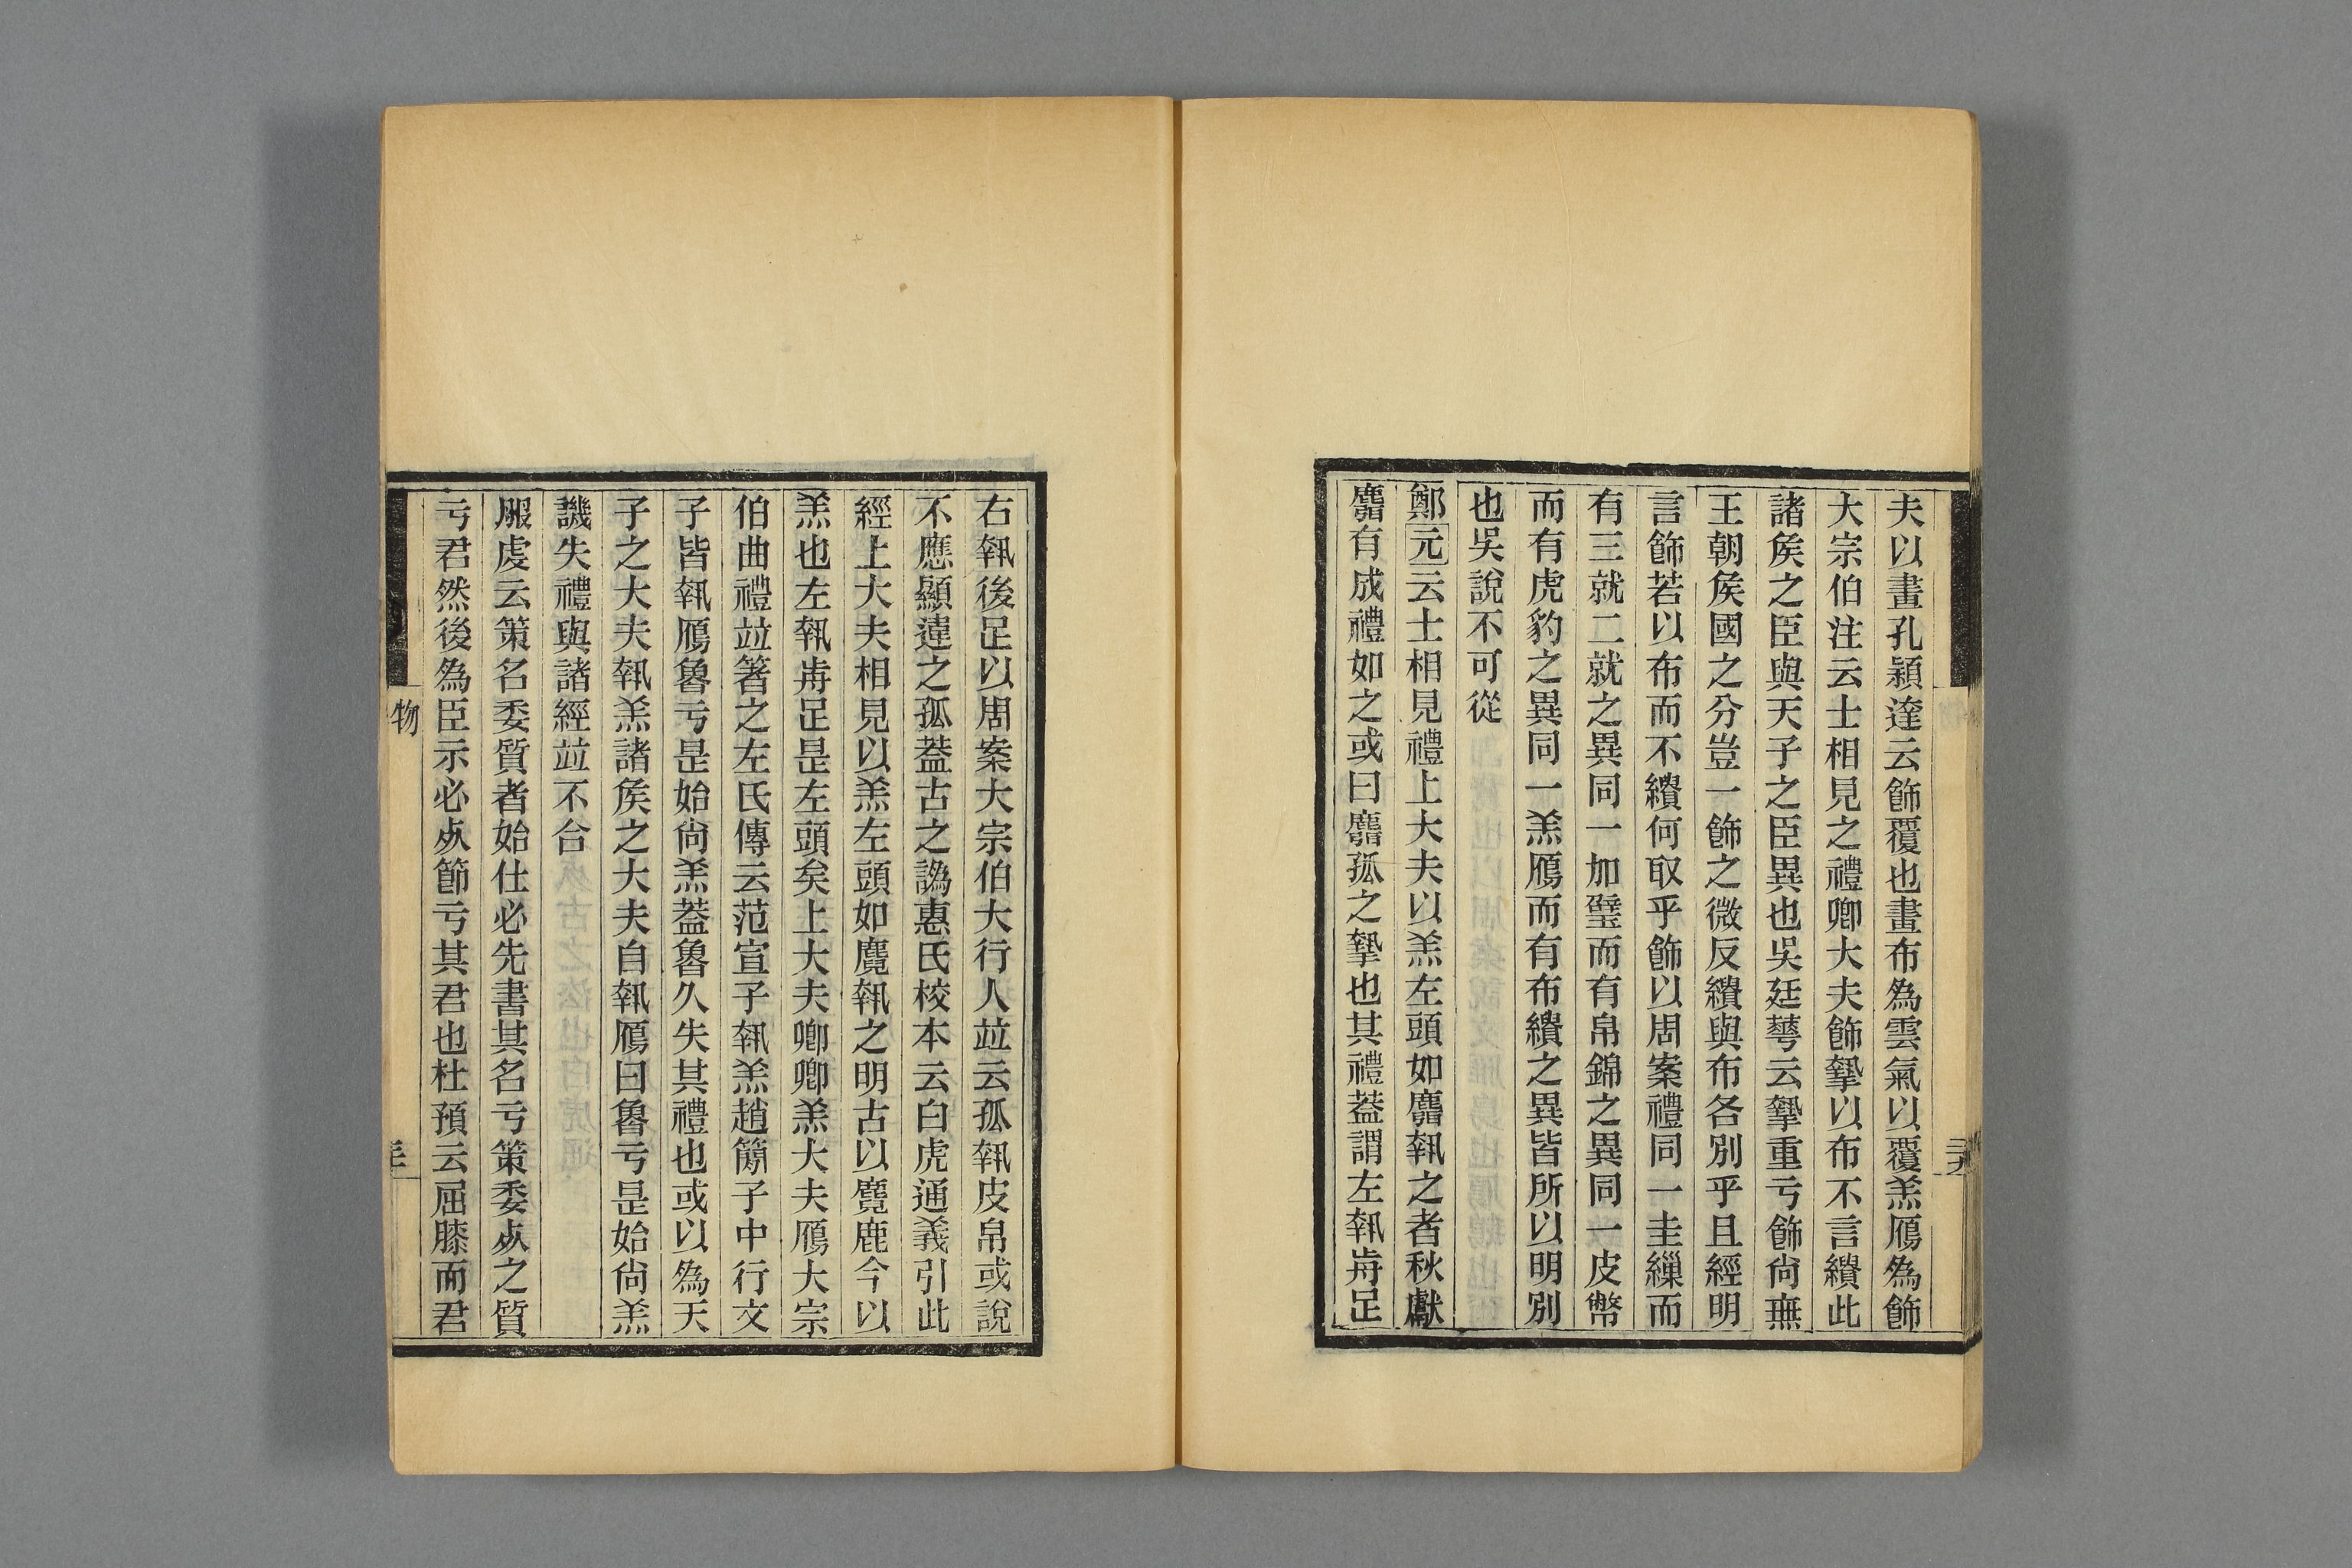 夫以畫孔穎達云飾覆也畫布爲雲氣以覆羔鴈爲飾
大宗伯注云士相見之禮卿大夫飾摯以布不言繢此
諸矦之臣與天子之臣異也吳廷蕚云摯重亏飾尙無
王朝矦國之分豈一飾之微反繢與布各別乎且經明
言飾若以布而不繢何取乎飾以周案禮同一圭繅而
有三就二就之異同一加璧而有帛錦之異同一皮幣
而有虎豹之異同一羔鴈而有布繢之異皆所以明別
也吳說不可從
鄭元云士相見禮上大夫以羔左頭如麛執之者秋獻
麛有成禮如之或曰麛孤之摯也其禮葢謂左執歬足
右執後足以周案大宗伯大行人竝云孤執皮帛或說
不應顯違之孤葢古之譌惠氏校本云白虎通義引此
經上大夫相見以羔左頭如麑執之明古以麑鹿今以
羔也左執歬足昰左頭矣上大夫卿卿羔大夫鴈大宗
伯曲禮竝箸之左氏傳云范宣子執羔趙簡子中行文
子皆執鴈魯亏昰始尙羔葢魯久失其禮也或以爲天
子之大夫執羔諸矦之大夫自執鴈曰魯亏昰始尙羔
譏失禮與諸經竝不合
服虔云策名委質者始仕必先書其名亏策委㱙之質
亏君然後爲臣示必㱙節亏其君也杜預云屈膝而君
物